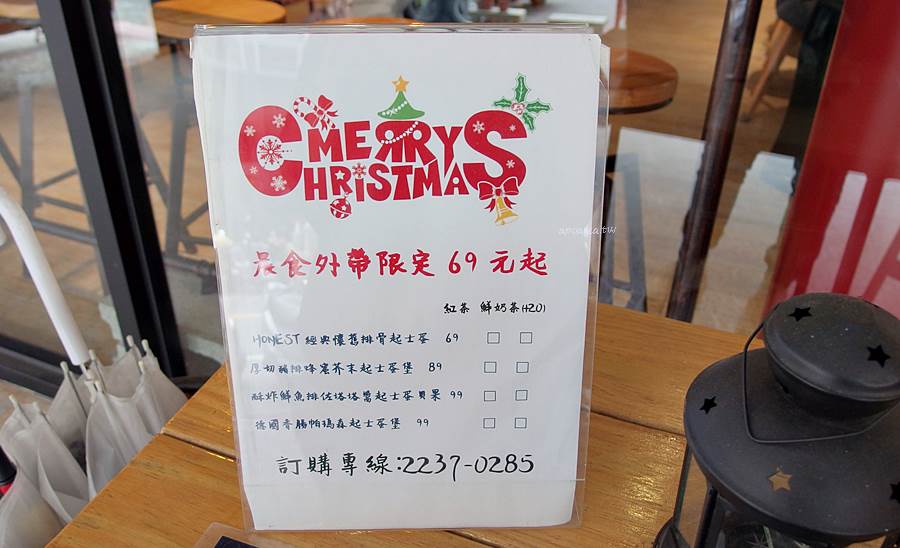 MERRY
CHRISTMAS
晨食外帶限定 69 元起
紅茶 鮮奶茶(+20)
HONEST 經典懷舊排骨起士蛋 69
厚切豬排蜂蜜芥末起士蛋堡 89
酥炸鮮魚排佐塔塔醬起士蛋貝果 99
德國香腸帕瑪森起士蛋堡 99
訂購專線:2237-0285